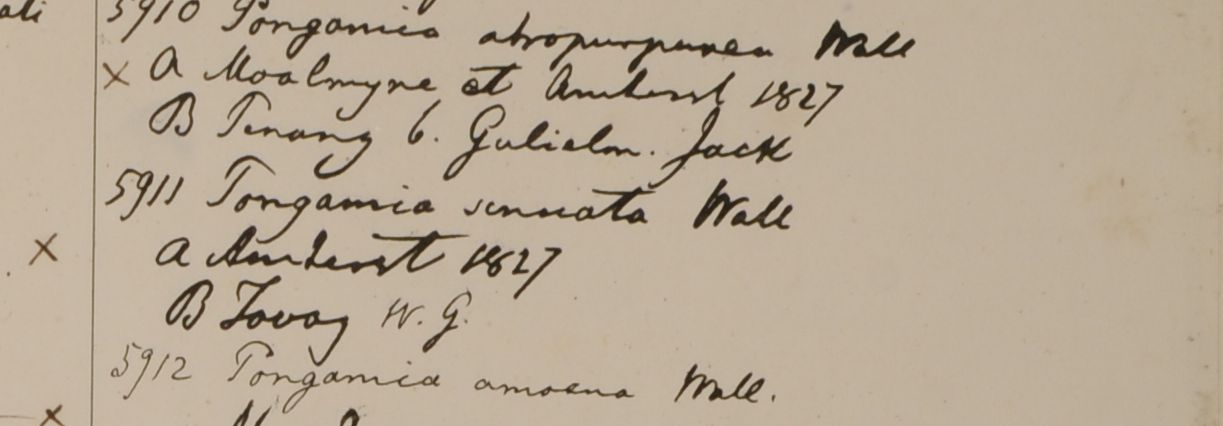 5910 Pongamia atropurpurea Wall
× A Moalmyne et Amherst 1827
B Penang b. Gulielm. Jack
5911 Pongamia sinuata Wall
× A Amherst 1827
B Tavoy W. G.
5912 Pongamia amoena Wall.
×